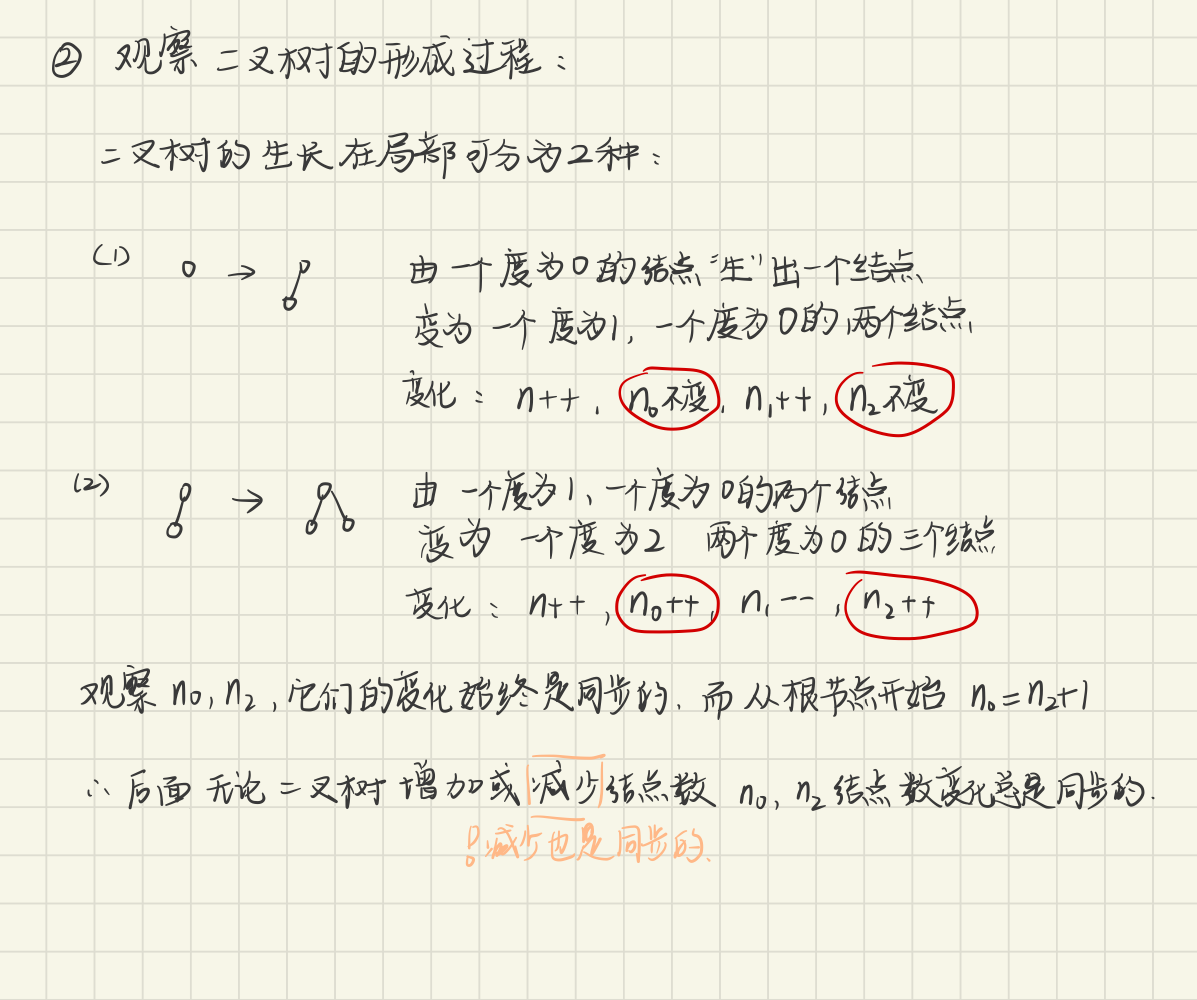 ② 观察二叉树的形成过程：
二叉树的生长在局部可分为2种：
(1) → 由一个度为0的结点"生"出一个结点
变为一个度为1，一个度为0的两个结点
变化：n++，n₀不变，n₁++，n₂不变
(2) → 由一个度为1、一个度为0的两个结点
变为一个度为2 两个度为0的三个结点
变化：n++，n₀++，n₁--，n₂++
观察n₀,n₂,它们的变化始终是同步的.而从根节点开始 n₀=n₂+1
∴后面无论二叉树增加或减少结点数 n₀,n₂结点数变化总是同步的.
!减少也是同步的.